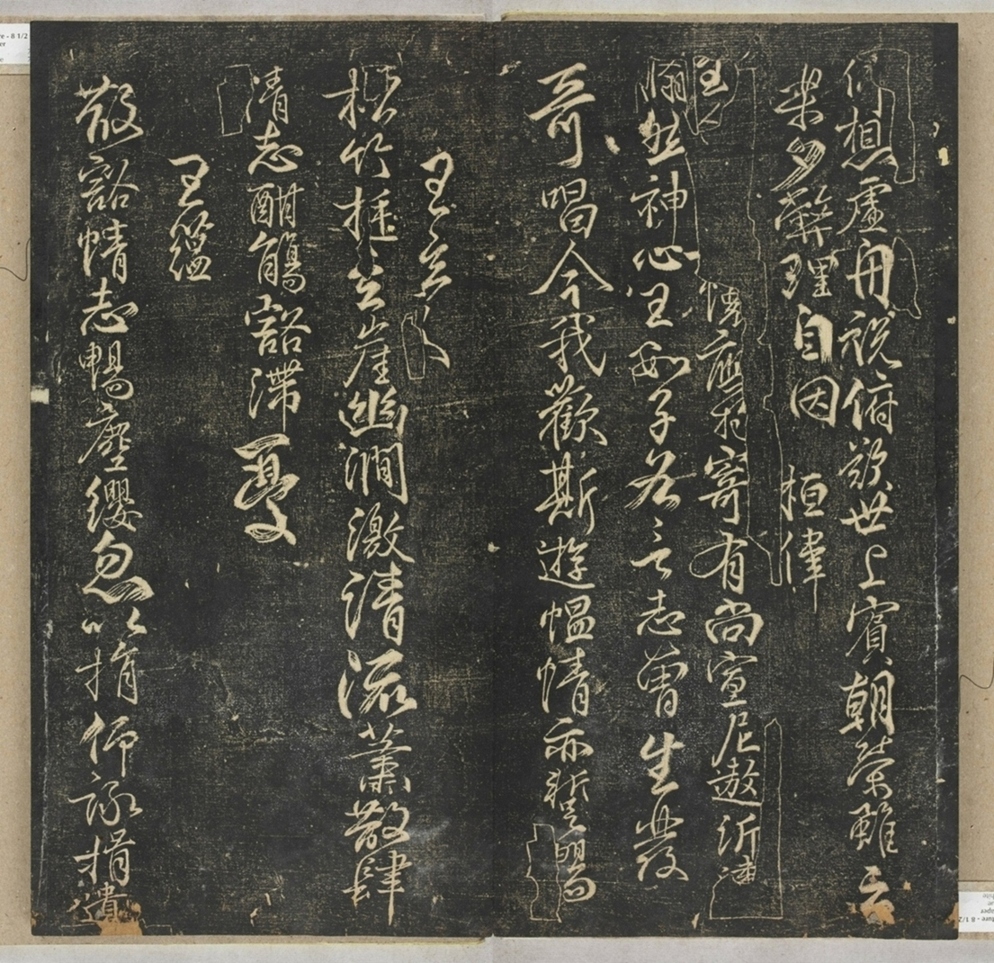 仰想虛舟說俯歎世上賓朝榮雖云
樂夕弊理自因 桓偉
主人 懷應物寄有尚宣尼遨沂津
翛然神心王數子各言志曾生發
奇唱今我歡斯遊慍情亦暫暢
王玄之
松竹挺巖崖幽澗激清流蕭散肆
情志酣觴豁滯憂
王蘊
散豁情志暢塵纓忽以捐仰詠挹遺